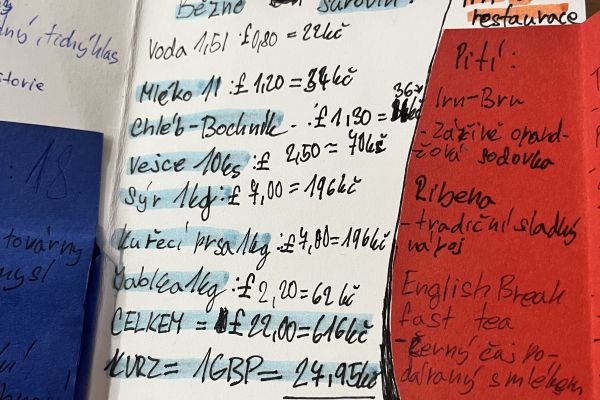 Běžné surovin:
Voda 1,5l £0,80 = 22kč
Mléko 1l :£ 1,20 = 34kč
Chléb-Bochník :£1,30 = 36kč
Vejce 10ks :£ 2,50 = 70kč
Sýr 1kg :£ 7,00 = 196kč
Kuřecí prsa 1kg :£7,00 = 196kč
Jablka 1kg :£2,20 = 62kč
CELKEM = £22,00 = 616kč
KURZ = 1GBP = 27,95kč
restaurace
Pití:
Irn-Bru
- Zářivě oranž-
žová sodovka
Ribena
- tradiční sladký
nápoj
English Break
fast tea
- Černý čaj po-
dávaný s mlékem
tichý hlas
itorie
18
továrny